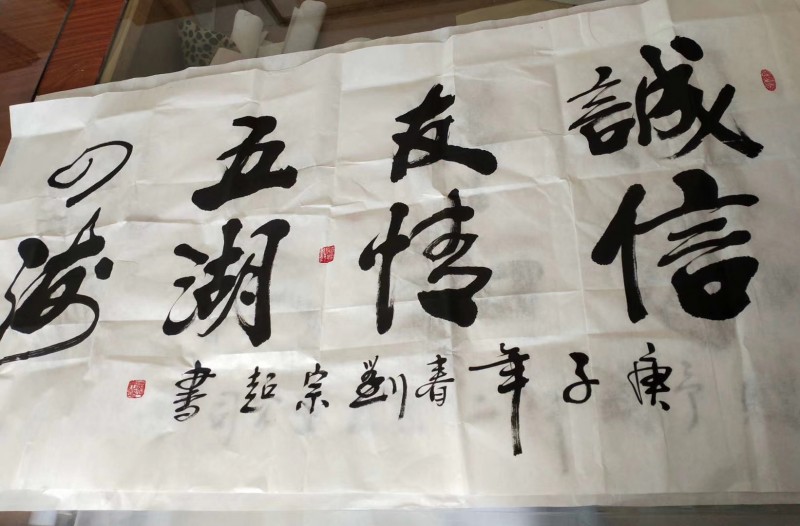 誠信
友情
五湖
四海
庚子年春劉宗起書